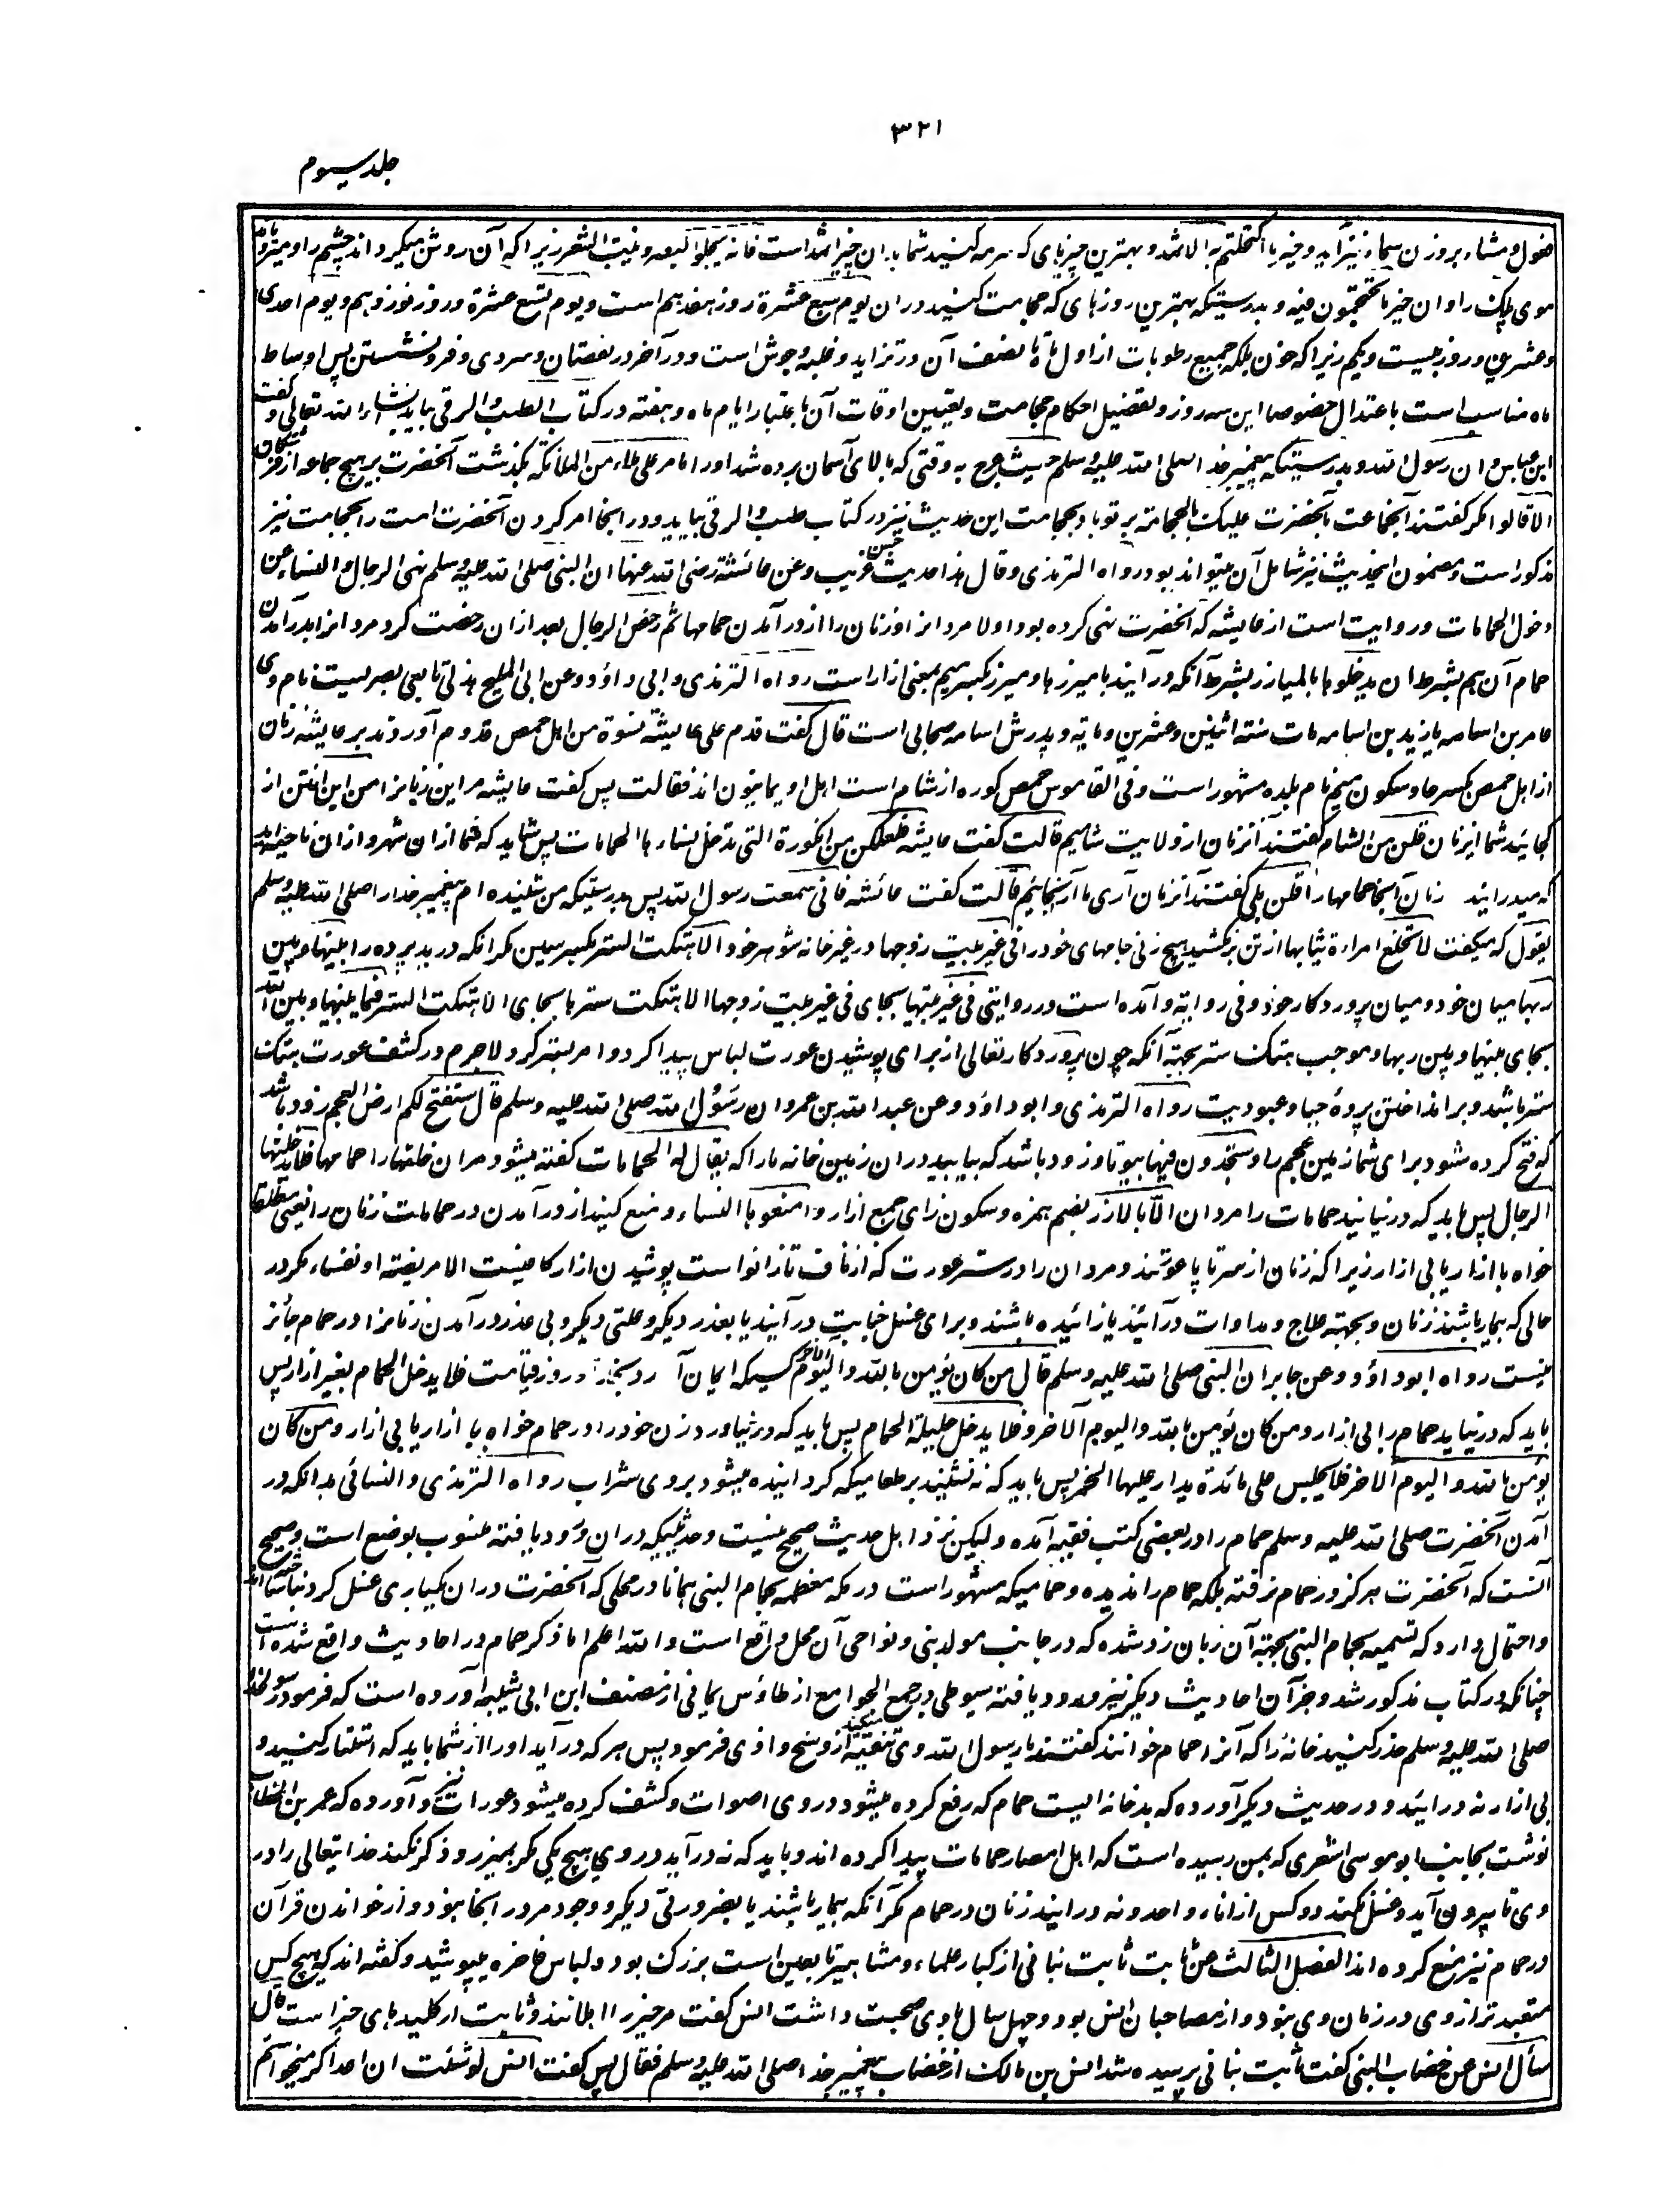 ۳۲۱
جلد سیوم
فعول و مشاء بروزن سماء نیز آید و خیر ما اکتحلتم به الاثمد و بهترین چیزهای که سرمه کنید شما بدان چیز اثمد است فانه یجلوا البصر و ینبت الشعر زیرا که آن روشن میگرداند چشم را و میرویاند
موی پلک را و ان خیر ما تحتجمون فیه و بدرستیکه بهترین روزهای که حجامت کنید در ان یوم سبع عشرة روز هفدهم است و یوم تسع عشرة و روز نوزدهم و یوم احدی
و عشرین و روز بیست و یکم زیرا که خون بلکه جمیع رطوبات از اول ماه تا نصف آن در تزاید و غلبه و جوش است و در آخر در نقصان و سردی و فرو نشستن پس اوساط
ماه مناسب است باعتدال خصوصا این سه روز و تفضیل احکام حجامت و تعیین اوقات آن باعتبار ایام ماه و هفته در کتاب الطب و الرقی بیاید انشاء الله تعالی و گفت
ابن عباس و ان رسول الله و بدرستیکه پیغمبر خدا صلی الله علیه وسلم حیث عرج به وقتی که بالای آسمان برده شد او را ما مر علی ملاء من الملائکة نگذشت آنحضرت بر هیچ جماعه از فرشتگان
الا قالوا مگر گفتند آنجماعت بآنحضرت علیک بالحجامة بر تو باد بحجامت این حدیث نیز در کتاب طب و الرقی بیاید و در اینجا امر کردن آنحضرت امت را بحجامت نیز
مذکور است و مضمون اینحدیث نیز شامل آن میتواند بود رواه الترمذی و قال هذا حدیث حسن غریب و عن عائشة رضی الله عنها ان النبی صلی الله علیه وسلم نهی الرجال و النساء عن
دخول الحمامات و روایت است از عایشه که آنحضرت نهی کرده بود اولا مردانرا و زنان را از درآمدن حمامها ثم رخص للرجال بعد ازان رخصت کرد مردانرا بدرآمدن
حمام آن هم بشرط ان یدخلوها بالمیازر بشرط آنکه در آیند بامیزرها و میزر بکسر میم بمعنی ازار است رواه الترمذی و ابی داؤد و عن ابی الملیح هذلی تابعی بصریست نام وی
عامر بن اسامه یا زید بن اسامه مات سنة اثنین و عشرین و مایه و پدرش اسامه صحابی است قال گفت قدم علی عایشة نسوة من اهل حمص قدوم آوردند بر عایشه زنان
از اهل حمص بکسر حا و سکون میم نام بلده مشهور است و فی القاموس حمص کوره از شام است اهل او یمانیون اند فقالت پس گفت عایشه مر این زنانرا من این انتن از
کجائید شما ایزنان قلن من الشام گفتند آنزنان از ولایت شامیم قالت گفت عایشه فلعلکن من الکورة التی تدخل نساءها الحمامات پس شاید که شما ازان شهر و ازان ناحیه‌اید
که میدرایند زنان آنجا حمامها را قلن بلی گفتند آنزنان آری ما از آنجائیم قالت گفت عائشه فانی سمعت رسول الله پس بدرستیکه من شنیده ام پیغمبر خدا را صلی الله علیه وسلم
یقول که میگفت لا تخلع امراءة ثیابها از تن نرکشد هیچ زنی جامهای خود را فی غیر بیت زوجها در غیر خانه شوهر خود الا هتکت الستر بکسر سین مگر آنکه دریده پرده را بینها و بین
ربها میان خود و میان پروردگار خود و فی روایة و آمده است در روایتی فی غیر بیتها بجای فی غیر بیت زوجها الا هتکت سترها بجای الا هتکت الستر فیما بینها و بین الله
بجای بینها و بین ربها و موجب هتک ستر بجهة آنکه چون پروردگار تعالی از برای پوشیدن عورت لباس پیدا کرد و امر بستر کرد لاجرم در کشف عورت هتک
ستر باشد و برانداختن پردهٔ حیا و عبودیت رواه الترمذی و ابو داؤد و عن عبد الله بن عمرو ان رسول الله صلی الله علیه وسلم قال ستفتح لکم ارض العجم زود باشد
که فتح کرده شود برای شما زمین عجم را و ستجدون فیها بیوتا و زود باشد که بیابید در ان زمین خانه ها را که یقال لها الحمامات گفته میشود مر ان خانها را حمامها فلا یدخلنها
الرجال پس باید که در نیایند حمامات را مردان الا بالازر بضم همزه و سکون زای جمع ازار و امنعوها النساء و منع کنید از درآمدن در حمامات زنان را یعنی مطلقا
خواه با ازار یا بی ازار زیرا که زنان از سر تا پا عورتند و مردان را در ستر عورت که از ناف تا زانو است پوشیدن ازار کافیست الا مریضة او نفساء مگر در
حالی که بیمار باشند زنان و بجهة علاج و مداوات درآیند یا زائیده باشند و برای غسل جنابت درآیند یا بعذر دیگر و علتی دیگر و بی عذر درآمدن زنانرا در حمام جائز
نیست رواه ابو داؤد و عن جابر ان النبی صلی الله علیه وسلم قال من کان یؤمن بالله و الیوم الاخر کسیکه ایمان آرد بخدا و روز قیامت فلا یدخل الحمام بغیر ازار پس
باید که در نیاید حمام را بی ازار و من کان یؤمن بالله و الیوم الاخر فلا یدخل حلیلة الحمام پس باید که در نیاورد زن خود را در حمام خواه با ازار یا بی ازار و من کان
یؤمن بالله و الیوم الاخر فلا یجلس علی مائدة یدار علیها الخمر پس باید که نه نشیند بر طعامیکه گردانیده میشود بر وی شراب رواه الترمذی و النسائی بدانکه در
آمدن آنحضرت صلی الله علیه وسلم حمام را در بعضی کتب فقهیه آمده ولیکن نزد اهل حدیث صحیح نیست و حدیثیکه در ان ورود یافته منسوب بوضع است و صحیح
آنست که آنحضرت هرگز در حمام نرفته بلکه حمام را ندیده و حمامیکه مشهور است در مکه معظمه بحمام النبی همانا در محلی که آنحضرت در ان یکباری غسل کرد بنا ساخته اند
و احتمال دارد که تسمیه بحمام النبی بجهة آن زبان زد شده که در جانب مولد نبی و نواحی آن محل واقع است و الله اعلم اما ذکر حمام در احادیث واقع شده است
چنانکه در کتاب مذکور شد و جز آن احادیث دیگر نیز ورود یافته سیوطی در جمع الجوامع از طاؤس یمانی از مصنف ابن ابی شیبه آورده است که فرمود رسولخدا
صلی الله علیه وسلم حذر کنید خانهٔ را که آنرا حمام خوانند گفتند یا رسول الله وی تنقیه میکند از وسخ و اذی فرمود پس هر که درآید او را از شما باید که استتار کنید و
بی ازار نه درائید و در حدیث دیگر آورده که بد خانه ایست حمام که رفع کرده میشود در وی اصوات و کشف کرده میشود عورات و نیز آورده که عمر بن الخطاب
نوشت بجانب ابو موسی اشعری که بمن رسیده است که اهل امصار حمامات پیدا کرده اند و باید که نه درآید در وی هیچ یکی مگر بمیزر و ذکر نکند خدایتعالی را در
وی تا بیرون آید و غسل نکند دو کس از اناء واحد و نه درایند زنان در حمام مگر آنکه بیمار باشند یا بضرورتی دیگر و وجود مرد در انجا نبود و از خواندن قرآن
در حمام نیز منع کرده اند الفصل الثالث عن ثابت ثابت بنانی از کبار علماء و مشاهیر تابعین است بزرگ بود و لباس فاخره میپوشید و گفته اند که هیچ کس
متعبد تر از وی در زمان وی نبود و از مصاحبان انس بود و چهل سال با وی صحبت داشت انس گفت مر خیر را اهلانند و ثابت از کلیدهای خیر است قال
سأل انس عن خضاب النبی گفت ثابت بنانی پرسیده شد انس بن مالک از خضاب پیغمبر خدا صلی الله علیه وسلم فقال پس گفت انس لو شئت ان اعد اگر میخواستم